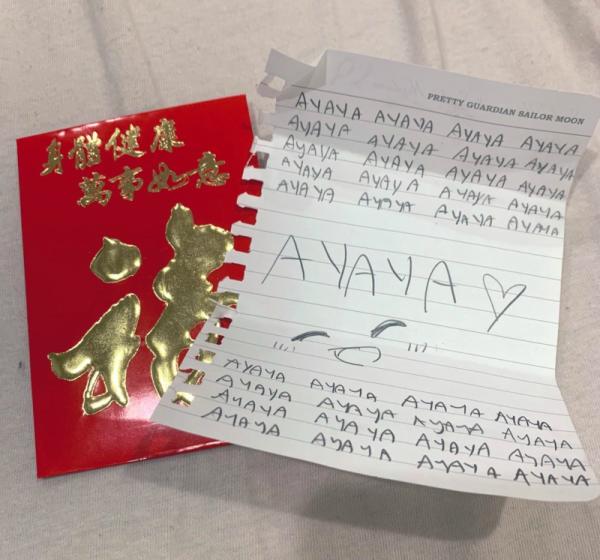 身體健康
萬事如意
PRETTY GUARDIAN SAILOR MOON
AYAYA AYAYA AYAYA AYAYA
AYAYA AYAYA AYAYA AYAYA
AYAYA AYAYA AYAYA AYAYA
AYAYA AYAYA AYAYA AYAYA
AYAYA AYAYA AYAYA AYAYA
AYAYA ♡
AYAYA AYAYA AYAYA AYAYA
AYAYA AYAYA AYAYA AYAYA
AYAYA AYAYA AYAYA AYAYA
AYAYA AYAYA AYAYA AYAYA